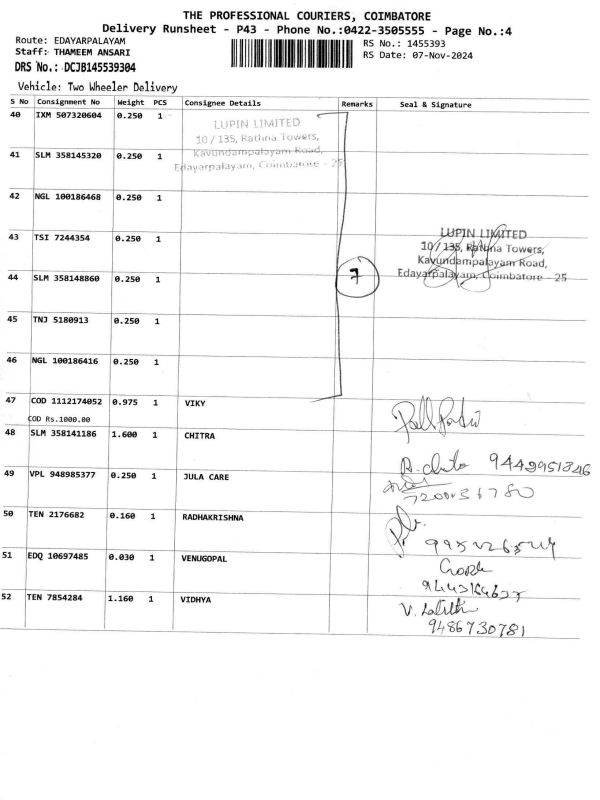 THE PROFESSIONAL COURIERS, COIMBATORE
Delivery Runsheet - P43 - Phone No.:0422-3505555 - Page No.:4
Route: EDAYARPALAYAM
RS No.: 1455393
Staff: THAMEEM ANSARI
RS Date: 07-Nov-2024
DRS No.: DCJB145539304
Vehicle: Two Wheeler Delivery
S No Consignment No Weight PCS Consignee Details Remarks Seal & Signature
40 IXM 507320604 0.250 1
LUPIN LIMITED
10 / 135, Rathna Towers,
Kavundampalayam Road,
Edayarpalayam, Coimbatore - 25
41 SLM 358145320 0.250 1
42 NGL 100186468 0.250 1
43 TSI 7244354 0.250 1
LUPIN LIMITED
10 / 135, Rathna Towers,
Kavundampalayam Road,
Edayarpalayam, Coimbatore - 25
44 SLM 358148860 0.250 1 7
45 TNJ 5180913 0.250 1
46 NGL 100186416 0.250 1
47 COD 1112174052 0.975 1 VIKY
COD Rs.1000.00
48 SLM 358141186 1.600 1 CHITRA
9442951846
49 VPL 948985377 0.250 1 JULA CARE
50 TEN 2176682 0.160 1 RADHAKRISHNA
51 EDQ 10697485 0.030 1 VENUGOPAL
52 TEN 7854284 1.160 1 VIDHYA
9486730781